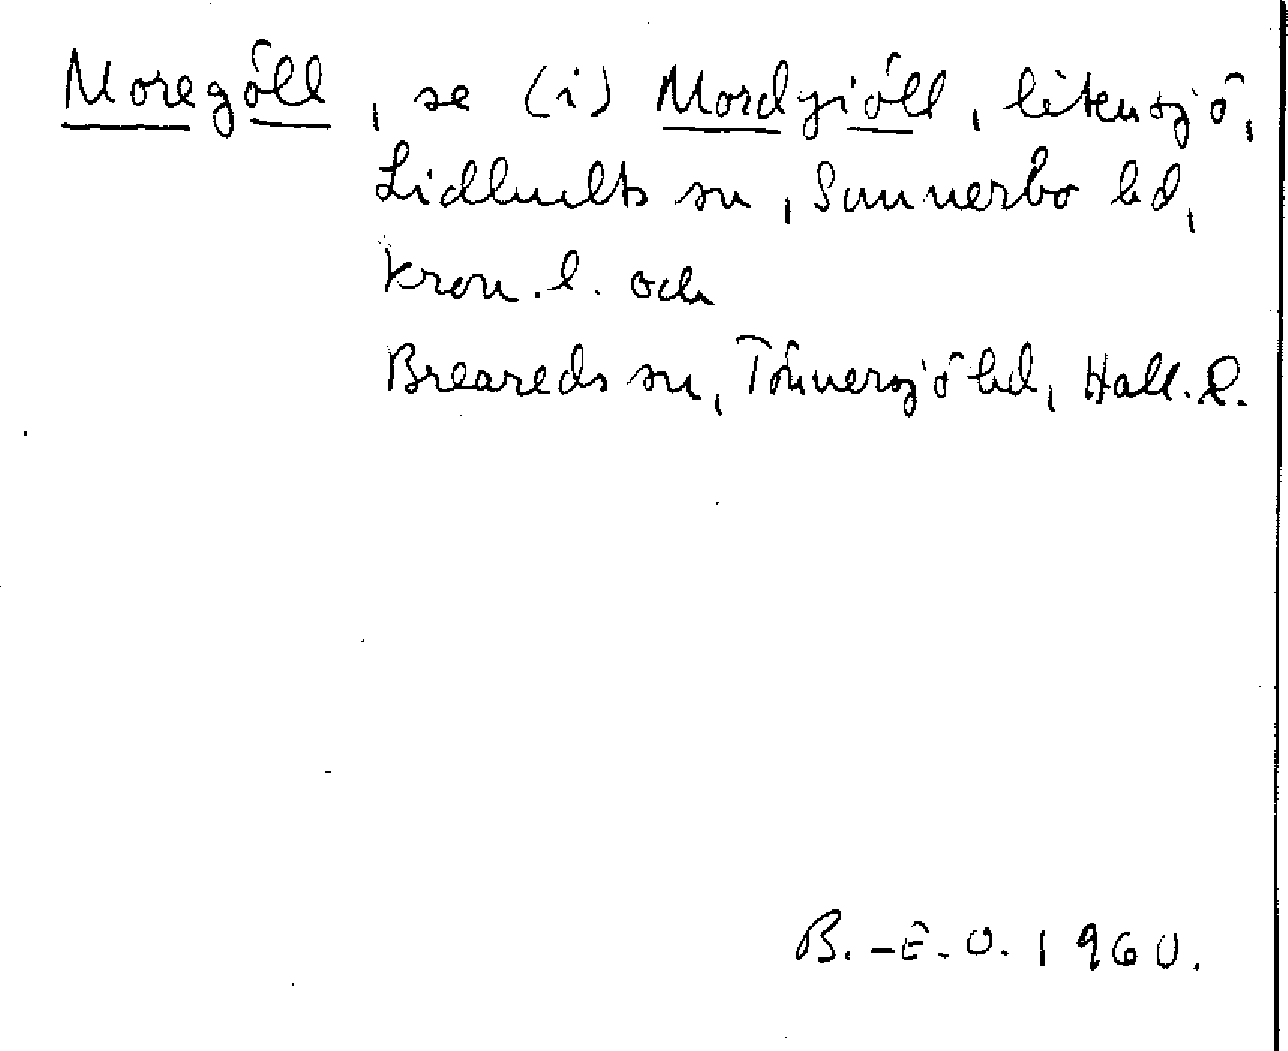 Moregöll, se (i) Mordgiöll, liten sjö,
Lidhults sn, Sunnerbo hd,
Kron. l. och
Breareds sn, Tönnersjö hd, Hall. l.
B.-E. O. 1960.